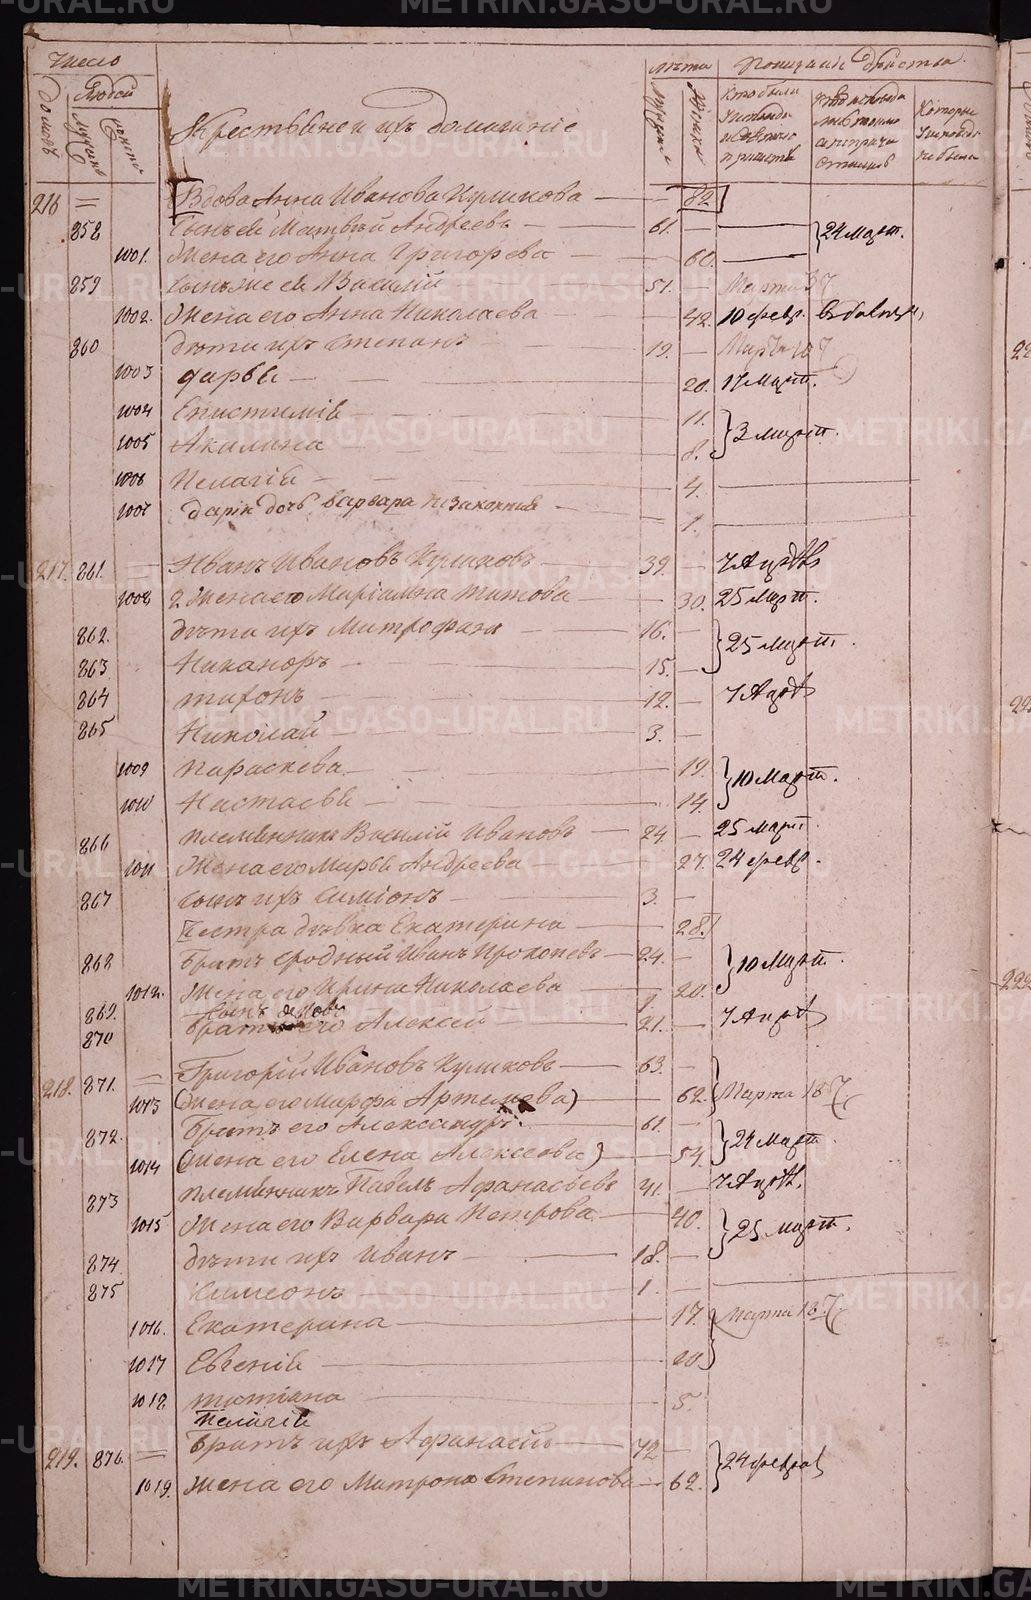 METRIKI.GASO-URAL.RU
Число
Лѣта
Показаніе дѣйства.
домовъ
Людей
Мужеска
Женска
Крестьяне и ихъ домашніе
216 Вдова Анна Иванова Куликова — 82
858 Сынъ ея Матвѣй Андреевъ — 61. — 24 Март.
1001. Жена его Анна Григорьева — 60.
859 Сынъ же ея Василій — 51. — Марта 37
1002. Жена его Анна Николаева — 42. 10 февр.
860 Дѣти ихъ Степанъ — 19. — Марта 10
1003 Дарья — 20. 17 Март.
1004 Епистимія — 11. 3 Март.
1005 Акилина — 8.
1006 Пелагія — 4.
1007 Дарьи дочь Варвара незаконная — 1.
217. 861. Иванъ Ивановъ Куликовъ — 39. — 7 Апр
1008 2. Жена его Маріамна Титова — 30. 25 Март.
862. Дѣти ихъ Митрофанъ — 16. — 25 Март.
863 Никаноръ — 15. —
864 Тихонъ — 12. — 7 Апр
865 Николай — 3. —
1009 Параскева — 19. 10 Март.
1010 Настасья — 14.
866 Племянникъ Василій Ивановъ — 24. — 25 Март.
1011 Жена его Марья Андреева — 27. 24 февр.
867 Сынъ ихъ Симіонъ — 3. —
Сестра дѣвка Екатерина — 28.
868 Братъ сродный Иванъ Прокопьевъ — 24. — 10 Март.
1012. Жена его Ирина Николаева — 20.
869. Сынъ — 1.
870 Братъ его Алексѣй — 21. — 7 Апр
218. 871. Григорій Ивановъ Куликовъ — 63. — Марта 18
1013 (Жена его Марфа Артемова) — 62.
872. Братъ его Александръ. — 61. — 24 Март.
1014 (Жена его Елена Алексѣева) — 54.
873 Племянникъ Павелъ Афанасьевъ — 41. — 7 Апр
1015 Жена его Варвара Петрова — 40. 25 Март.
874. Дѣти ихъ Иванъ — 18. —
875 Симеонъ — 1.
1016. Екатерина — 17. Марта 18
1017 Евгенія — 20.
1018. Татіана — 5.
Пелагія
219. 876. Братъ ихъ Афанасій — 72 — 24 февраля
1019. Жена его Матрона Степанова — 62.